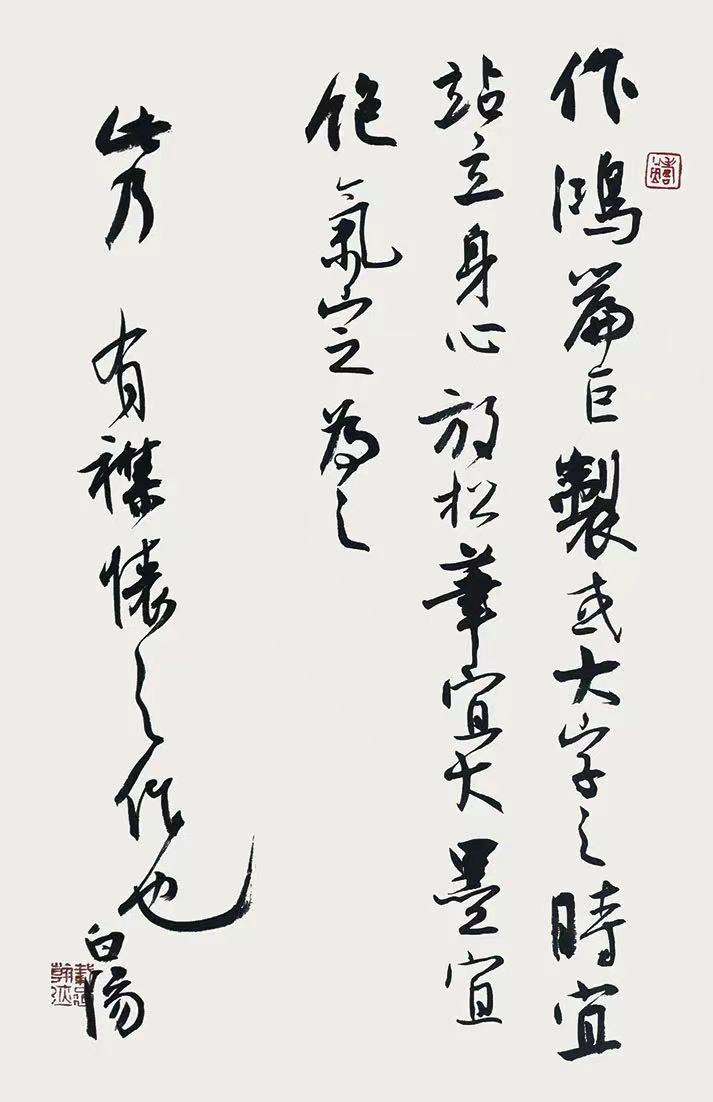 作鴻篇巨製或大字之時宜
站立身心放松筆宜大墨宜
飽氣宜定為之
此乃有襟懷之作也
白陽